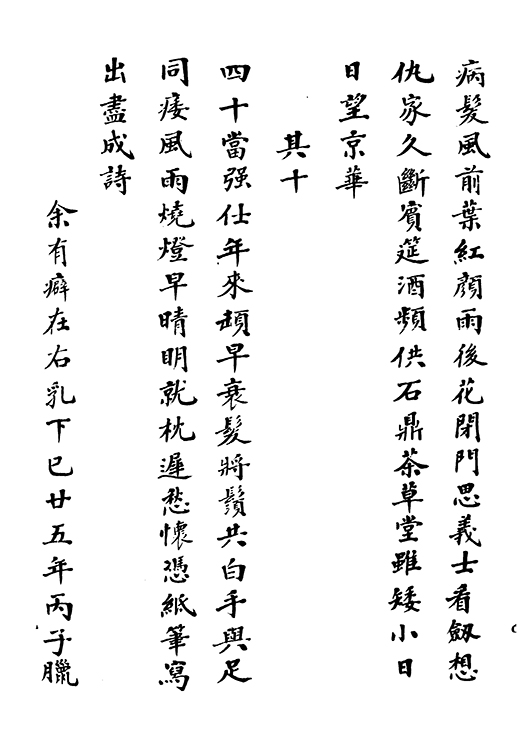 病髮風前葉紅顏雨後花閉門思義士看劔想
仇家久斷賓筵酒頻供石鼎茶草堂雖矮小日
日望京華
其十
四十當强仕年來頓早衰髮將鬚共白手與足
同痿風雨燒燈早晴明就枕遲愁懷憑紙筆寫
出盡成詩
余有癖在右乳下已廿五年丙子臘